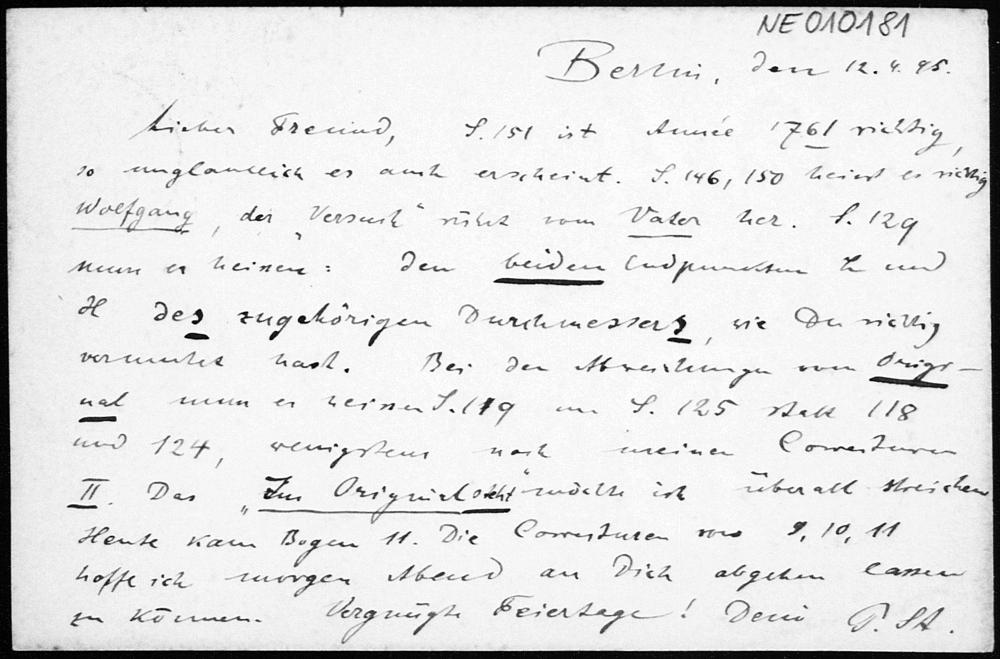 NE010181
Berlin, den 12.4.95.
Lieber Freund, S. 151 ist Année 1761 richtig,
so unglaublich es auch erscheint. S. 146, 150 heisst es richtig
Wolfgang, der „Versuch“ rührt vom Vater her. S. 129
muss es heissen: den beiden Endpunkten E und
H des zugehörigen Durchmessers, wie Du richtig
vermuthet hast. Bei den Abweichungen vom Origi-
nal muss es heissen S. 119 und S. 125 statt 118
und 124, wenigstens nach meinen Correcturen
II. Das „Im Original steht“ möchte ich überall streichen
Heute kam Bogen 11. Die Correcturen von 9, 10, 11
hoffe ich morgen Abend an Dich abgehen lassen
zu können. Vergnügte Feiertage! Dein P. St.